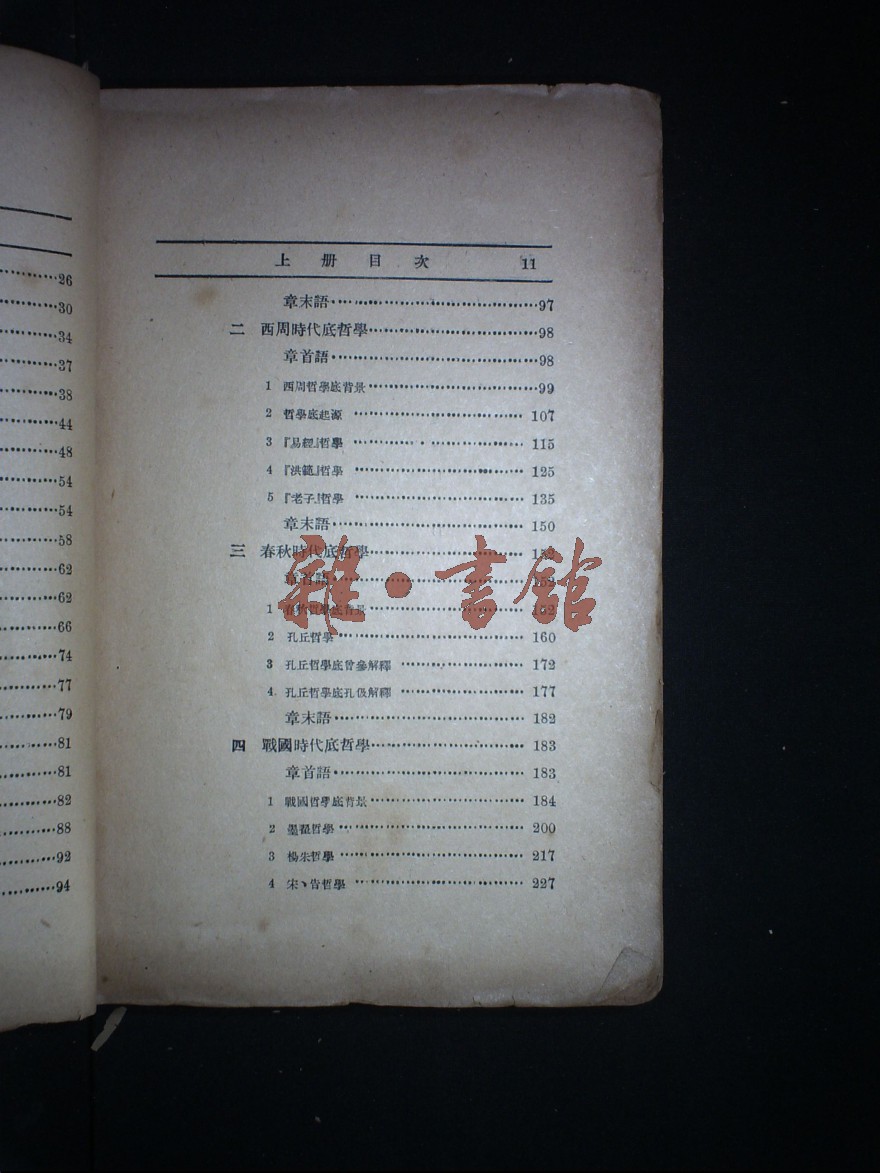 26
30
34
37
38
44
48
54
54
58
62
62
66
74
77
79
81
81
82
88
92
94
上册目次 11
章末語 97
二 西周時代底哲學 98
章首語 98
1 西周哲學底背景 99
2 哲學底起源 107
3 『易經』哲學 115
4 『洪範』哲學 125
5 『老子』哲學 135
章末語 150
三 春秋時代底哲學 152
章首語 152
1 春秋哲學底背景 152
2 孔丘哲學 160
3 孔丘哲學底曾參解釋 172
4 孔丘哲學底孔伋解釋 177
章末語 182
四 戰國時代底哲學 183
章首語 183
1 戰國哲學底背景 184
2 墨翟哲學 200
3 楊朱哲學 217
4 宋、告哲學 227
雜·書館